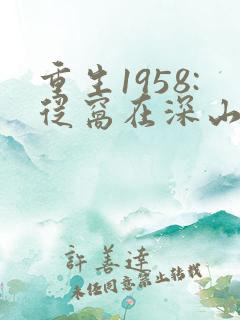 重生1958:
从窝在深山
許善達
未经同意禁止转载